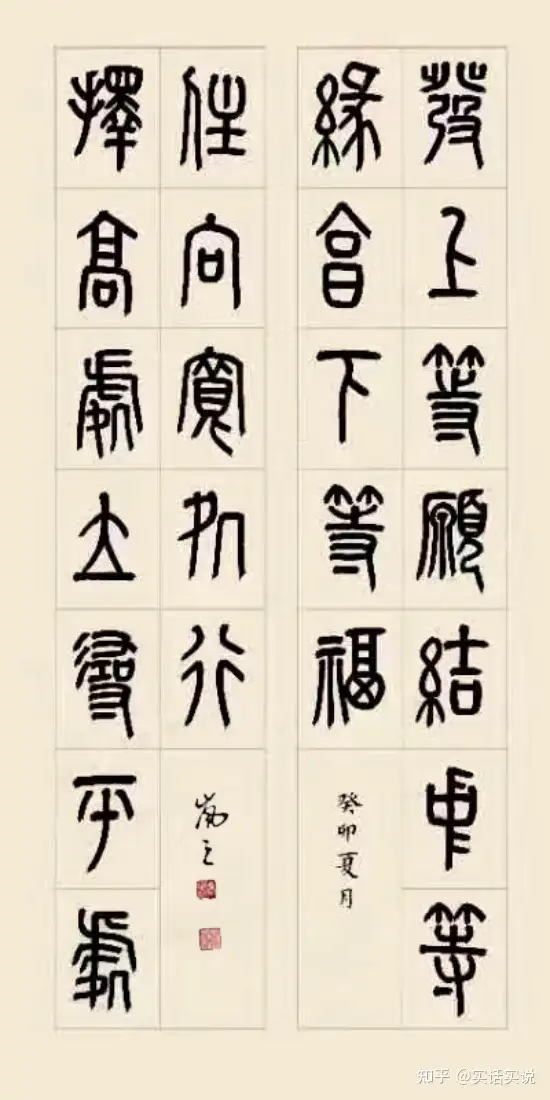 發上等願結中等
緣享下等福
癸卯夏月
擇高處立尋平處
住向寬処行
嵐之
知乎 @实话实说